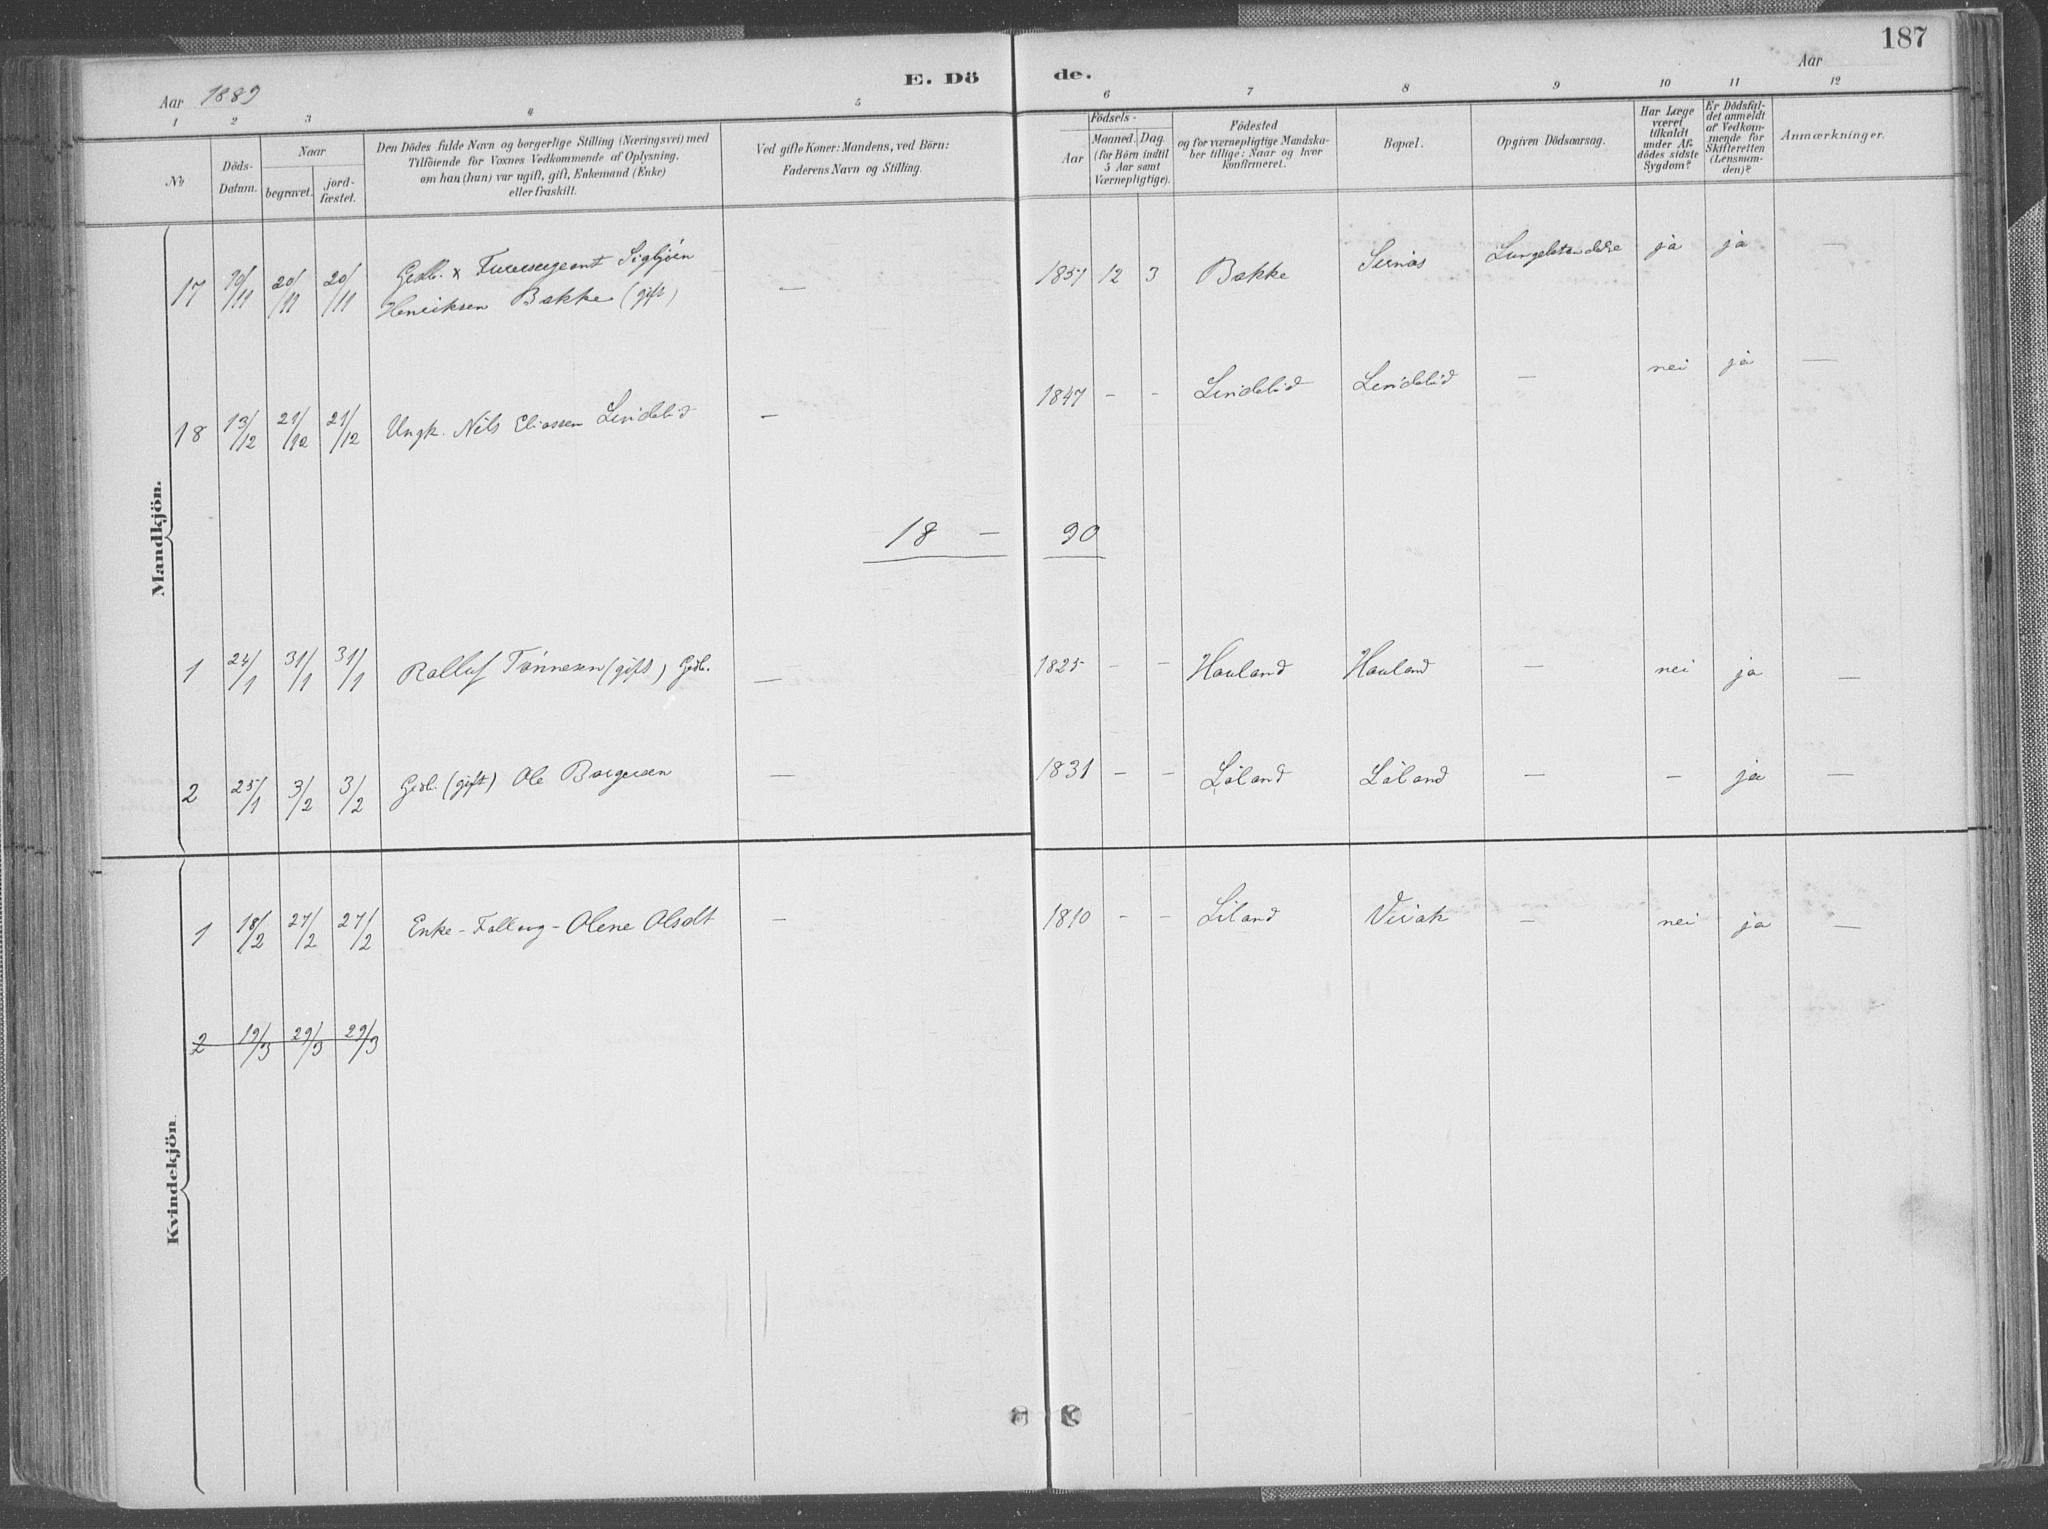 187
E. Dö de.
Aar 1889
Aar
1 2 3 4 5 6 7 8 9 10 11 12
No
Döds-
Datum.
Naar
begravet.
jord-
fæstet.
Den Dödes fulde Navn og borgerlige Stilling (Næringsvei) med
Tilföiende for Voxnes Vedkommende af Oplysning,
om han (hun) var ugift, gift, Enkemand (Enke)
eller fraskilt.
Ved gifte Koner: Mandens, ved Börn:
Faderens Navn og Stilling.
Födsels-
Aar
Maaned. Dag.
(for Börn indtil
5 Aar samt
Værnepligtige).
Födested
og for værnepligtige Mandska-
ber tillige: Naar og hvor
konfirmeret.
Bopæl.
Opgiven Dödsaarsag.
Har Læge
været
tilkaldt
under Af-
dödes sidste
Sygdom?
Er Dödsfal-
det anmeldt
af Vedkom-
mende for
Skifteretten
(Lensman-
den)?
Anmærkninger.
Mandkjön.
17 10/11 20/11 20/11 Gedb. x Sigbjörn
Henriksen Bakke (gift) — 1857 12 3 Bakke Sirnæs ja ja —
18 13/12 21/12 21/12 Ungk. Nils Eliassen Lindelid — 1847 - - Lindelid Lindelid — nei ja —
18 — 90
1 24/1 31/1 31/1 Rolluf Tønnesen (gift) Gedb. — 1825 - - Hauland Hauland — nei ja —
2 25/1 3/2 3/2 Gedb. (gift) Ole Børgesen — 1831 - - Löland Löland — - ja —
Kvindekjön
1 18/2 27/2 27/2 Enke - Fattig - Olene Olsdt — 1810 - - Liland Virak — nei ja —
2 19/3 29/3 29/3